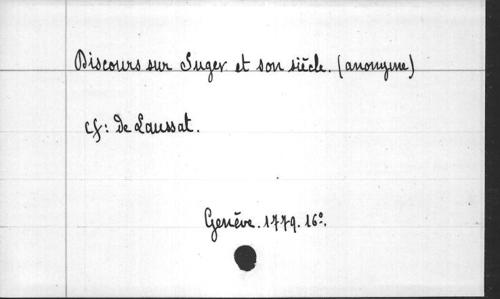 Discours sur Suger et son siècle. (anonyme)
cf: De Laussat.
Genève. 1779. 16°.